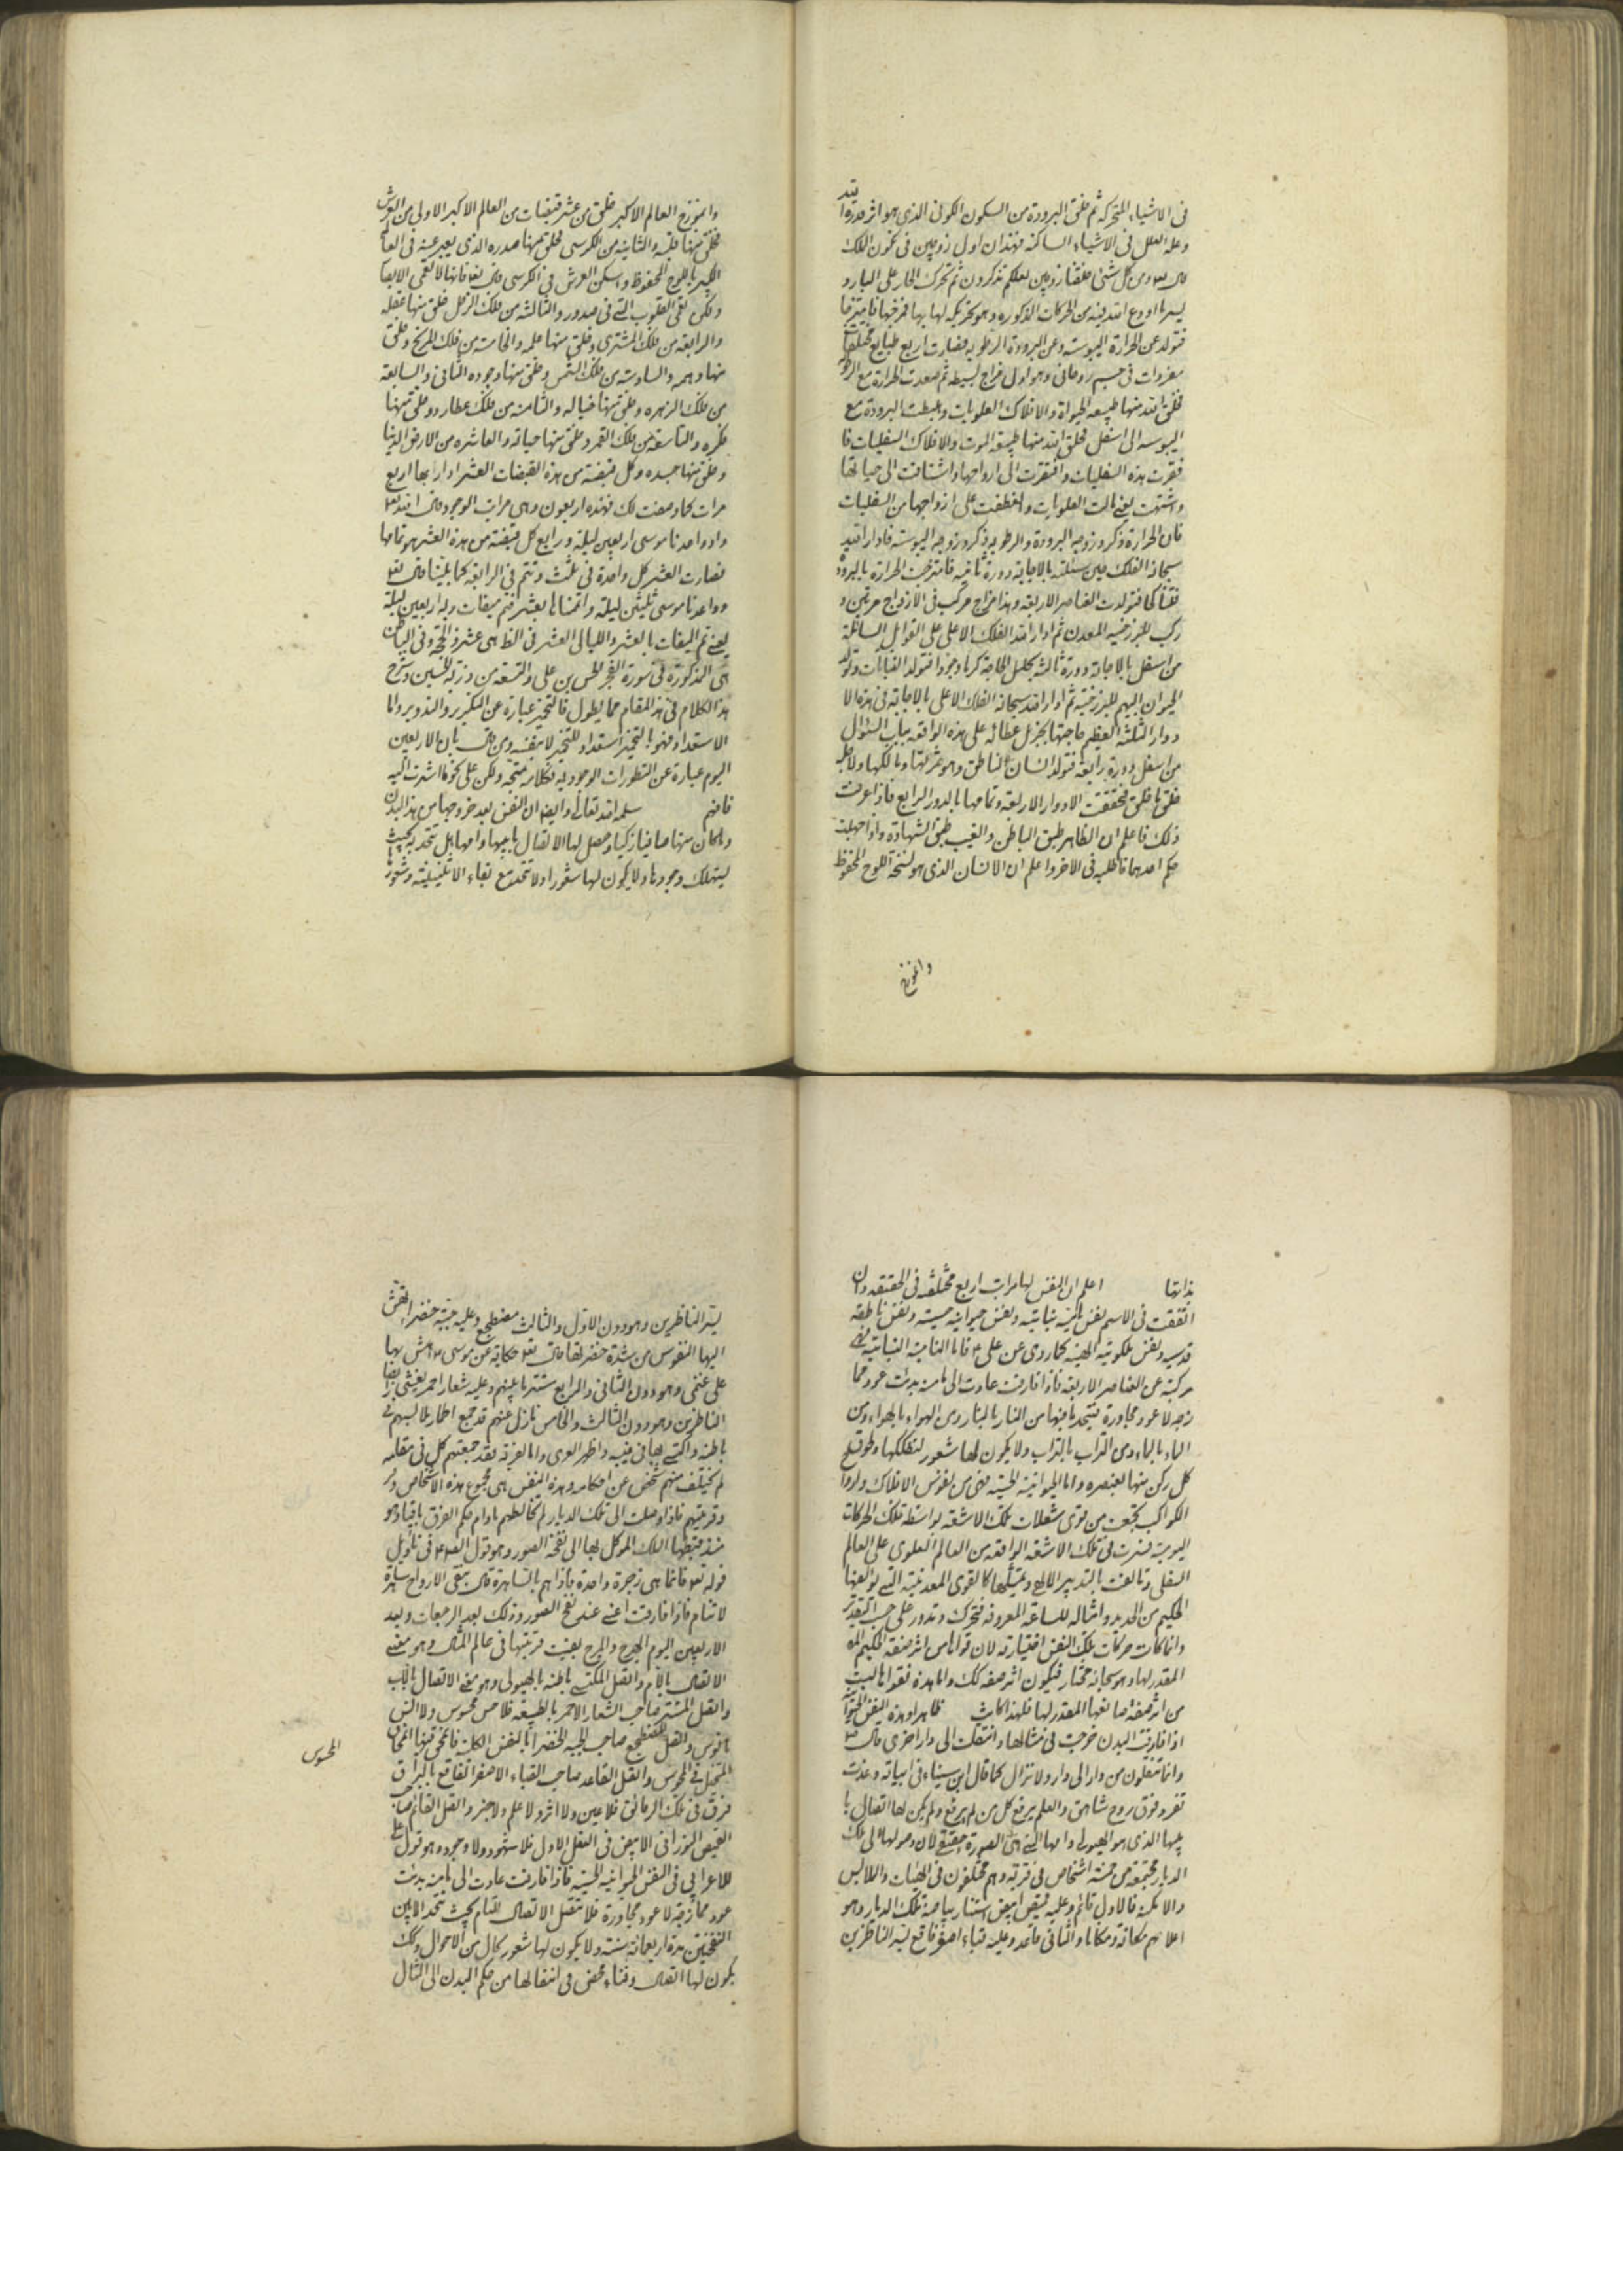 في الاشياء المتحركه ثم خلق البرودة من السكون الكوني الذي هو اثر قدرة الله
وعله العلل في الاشياء الساكنه فهذان اول زوجين في تكون الملك
قال تعه ومن كل شئ خلقنا زوجين لعلكم تذكرون ثم تحرك الحار على البارد
بسر ما اودع الله فيه من الحركات المذكوره وهو تحريكه لها بها فمزجها فامتزجا
فتولد عن الحرارة اليبوسته وعن البرودة الرطوبه فصارت اربع طبايع مختلفات
مفردات في جسم روحاني وهو اول مزاج بسيط ثم صعدت الحرارة مع الرطوبه
فخلق الله منها طبيعه الحيواة والافلاك العلويات وهبطت البرودة مع
اليبوسه الى اسفل فخلق الله منها طبيعه الموت والافلاك السفليات فا
فتقرت هذه السفليات وافتقرت الى ارواحها واشتاقت الى حياتها
واشتهت يعنى مالت العلويات وانعطفت على ازواجها من السفليات
فان الحرارة ذكر وزوجه البرودة والرطوبه ذكر وزوجه اليبوسته فادار الله
سبحانه الفلك حين سئلته بالاجابه دورة ثانيه فامتزجت الحرارة بالبرودة
فتولدت العناصر الاربعه وهذا مزاج مركب في الازدواج مرتين و
ركب للبرزخيه المعدن ثم ادار الله الفلك الاعلى على القوابل السائلة
من اسفل بالاجابه دورة ثالثه كرما وجودا فتولد النباتات وتولد
الحيوان البهيم للبرزخيه ثم ادار الله سبحانه الفلك الاعلى بالاجابه في هذه الا
دوار الثلثه العظيم حاجتها بجزيل عطائه على هذه الواقفه بباب السئوال
من اسفل دورة رابعه فتولد انسان الناطق وهو ثمرتها ومالكها ولاجله
خلق ما خلق فتحققت الادوار الاربعه وتمامها بالدور الرابع فاذا عرفت
ذلك فاعلم ان الظاهر طبق الباطن والغيب طبق الشهادة واذا جهلت
حكم احدهما فاطلبه في الاخر واعلم ان الانسان الذي هو نسخة اللوح المحفوظ
وانموذج
وانموزج العالم الاكبر خلق من عشر قبضات من العالم الاكبر الاولى من العرش
فخلق منها قلبه والثانيه من الكرسي فخلق منها صدره الذي يعبر عنه في العالم
الكبير باللوح المحفوظ واسكن العرش في الكرسي قال تعه فانها لا تعمى الابصا
ولكن تعمى القلوب التي في الصدور والثالثه من فلك الزحل فخلق منها عقله
والرابعه من فلك المشتري وخلق منها علمه والخامسه من فلك المريخ وخلق
منها وهمه والسادسه من فلك الشمس وخلق منها وجوده الثاني والسابعه
من فلك الزهره وخلق منها خياله والثامنه من فلك عطارد وخلق منها
فكره والتاسعه من فلك القمر وخلق منها حياته والعاشره من الارض الدنيا
وخلق منها جسده وكل قبضه من هذه القبضات العشر ادارها اربع
مرات كما وصفت لك فهذه اربعون وهي مراتب الوجود قال الله تعه
واذ واعدنا موسى اربعين ليلة ورابع كل قبضته من هذه العشر هو تمامها
فصارت العشر كل واحدة في ثلث وتتم في الرابعه كما بينا قال تعه
وواعدنا موسى ثلثين ليلة واتممناها بعشر فتم ميقات ربه اربعين ليلة
يعنى تم الميقات بالعشر والليالي العشر في الظاهر عشر ذي الحجة وفي الباطن
هي المذكورة في سورة الفجر الحسن بن علي والتسعه من ذرية الحسين وشرح
هذا الكلام في هذا المقام مما يطول فالتخمير عبارة عن التكرير والتدوير واما
الاستعداد فهو بالتخمير استعداد للتخمير لا بنفسه ومن قال بان الاربعين
اليوم عبارة عن التطورات الوجوديه فكلامه متجه ولكن على نحو ما اشرت اليه
فافهم سلمه الله تعالى وايضا ان النفس بعد خروجها من هذا البدن
وما كان منها صافيا زكيا وحصل لها الاتصال بابيها وامها هل تتحد به بحيث
يستهلك وجودها ولا يكون لها شعورا ولا تتحد مع بقاء الاثنينيته وشعورها
بذاتها اعلم ان النفس لها مراتب اربع مختلفه في الحقيقه وان
اتفقت في الاسم نفس نباتيه ونفس حيوانيه حسيته ونفس ناطقه
قدسيه ونفس ملكوتيه الهيه كما روى عن علي ع فاما النامية النباتيه فهي
مركبة عن العناصر الاربعه فاذا فارقت عادت الى ما منه بدئت عود مما
زجه لا عود مجاورة فيتحد ما فيها من النار بالنار ومن الهواء بالهواء ومن
الماء بالماء ومن التراب بالتراب ولا يكون لها شعور لتفككها ولحوق
كل ركن منها بعنصره واما الحيوانيه الحسيه فهي من نفوس الافلاك ولروا
الكواكب تجمعت من قوى شعلات تلك الاشعه بواسطه تلك الحركات
اليوميته فسرت في تلك الاشعه الواقعه من العالم العلوي على العالم
السفلي وتالفت بالتدبير الالهي وتمثلها كالقوى المعدنيته التي يؤلفها
الحكيم من الحديد وامثاله للساعة المعروفه فتتحرك وتدور على حسب التقدير
وانما كانت حركات تلك النفس اختياريه لان قواها من اثر صنعه الحكيم الله
المقدر لها وهو سبحانه مختار فيكون اثر صنعه كك واما هذه فقواها ليست
من اثر صنعه اصانعها المقدر لها فلهذا كانت ظاهرا وهذه النفس الحيوانيه
اذا فارقت البدن خرجت في مثالها وانتقلت الى دار اخرى قال ص
وانما تنتقلون من دار الى دار ولا تزال كما قال ابن سيناء في ابياته وغدت
تغرد فوق روح شاهق والعلم يرفع كل من لم يرفع ولم يكن لها اتصال با
بيها الذي هو الهيولى وامها التي هي الصورة حقيقه لان وصولها الى تلك
الديار مجتمعة من خمسة اشخاص في قرية وهم مختلفون في الهيات والملابس
والامكنه فالاول قائم وعليه قميص ابيض استنار بياضه تلك الديار وهو
اعلاهم مكانة ومكانا والثاني قاعد وعليه قباء اصفر فاقع يسر الناظرين
يسر الناظرين وهو دون الاول والثالث مضطجع وعليه جبة خضراء تهش
اليها النفوس من شدة خضرتها قال تعه حكاية عن موسى ع واهش بها
على غنمى وهو دون الثاني والرابع مستتر بابيهم وعليه شعار احمر يغشى ابصا
الناظرين وهو دون الثالث والخامس نازل عنهم قد جمع اطمار ملابسهم في
باطنه واكتسى بها في غيبه واظهر العرى واما الغربة فقد جمعتهم كل في مقامه
لم يختلف منهم شخص عن احكامه وهذه النفس هي مجموع هذه الاشخاص ودر
وقريتهم فاذا وصلت الى تلك الديار لم تخالطهم مادام حكم الفرق باقيا وهو
منذ قبضها الملك الموكل بها الى نفخة الصور وهو قول الصادق ع في تاويل
قوله تعه فانما هي زجرة واحدة فاذا هم بالساهرة قال تبقى الارواح ساهرة
لا تنام فاذا فارقت اعنى عند نفخ الصور وذلك بعد الرجعات وبعد
الاربعين اليوم الهرج والمرج بقيت قريتها في عالم المثال وهو معنى
الاتصال بالام واتصل المكتسى باطنه بالهيولى وهو معنى الاتصال بالاب
واتصل المستتر صاحب الشعار الاحمر بالطبيعه فلا حس محسوس ولا انس
مانوس واتصل المضطجع صاحب الجبه الخضراء بالنفس الكليه فانمحى فيها انمحاء
المتخيل في المحسوس واتصل القاعد صاحب القباء الاصفر الفاقع بالبراق
فرق في تلك الرقائق فلا عين ولا اثر ولا علم ولا خبر واتصل القائم صاحب
القميص النوراني الابيض في العقل الاول فلا شهود ولا وجود وهو قول علي
للاعرابي في النفس الحيوانيه الحسيه فاذا فارقت عادت الى ما منه بدئت
عود ممازجة لا عود مجاورة فلا تتصل الاتصال التام بحيث تتحد الا بين
النفختين مدة اربعمائة سنة ولا يكون لها شعور بحال من الاحوال وكك
يكون لها اتصال وفناء محض في انتقالها من حكم البدن الى المثال
المحسوس